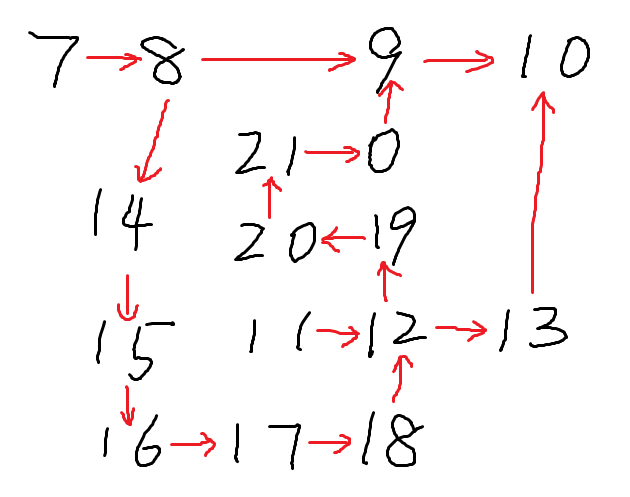 7 → 8 → 9 → 10
21 → 0
14
20 ← 19
15 11 → 12 → 13
16 → 17 → 18